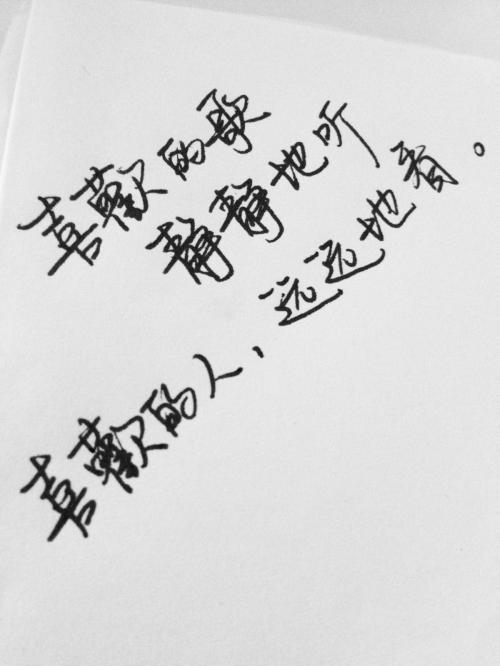 喜歡的歌
静静地听
喜歡的人，远远地看。